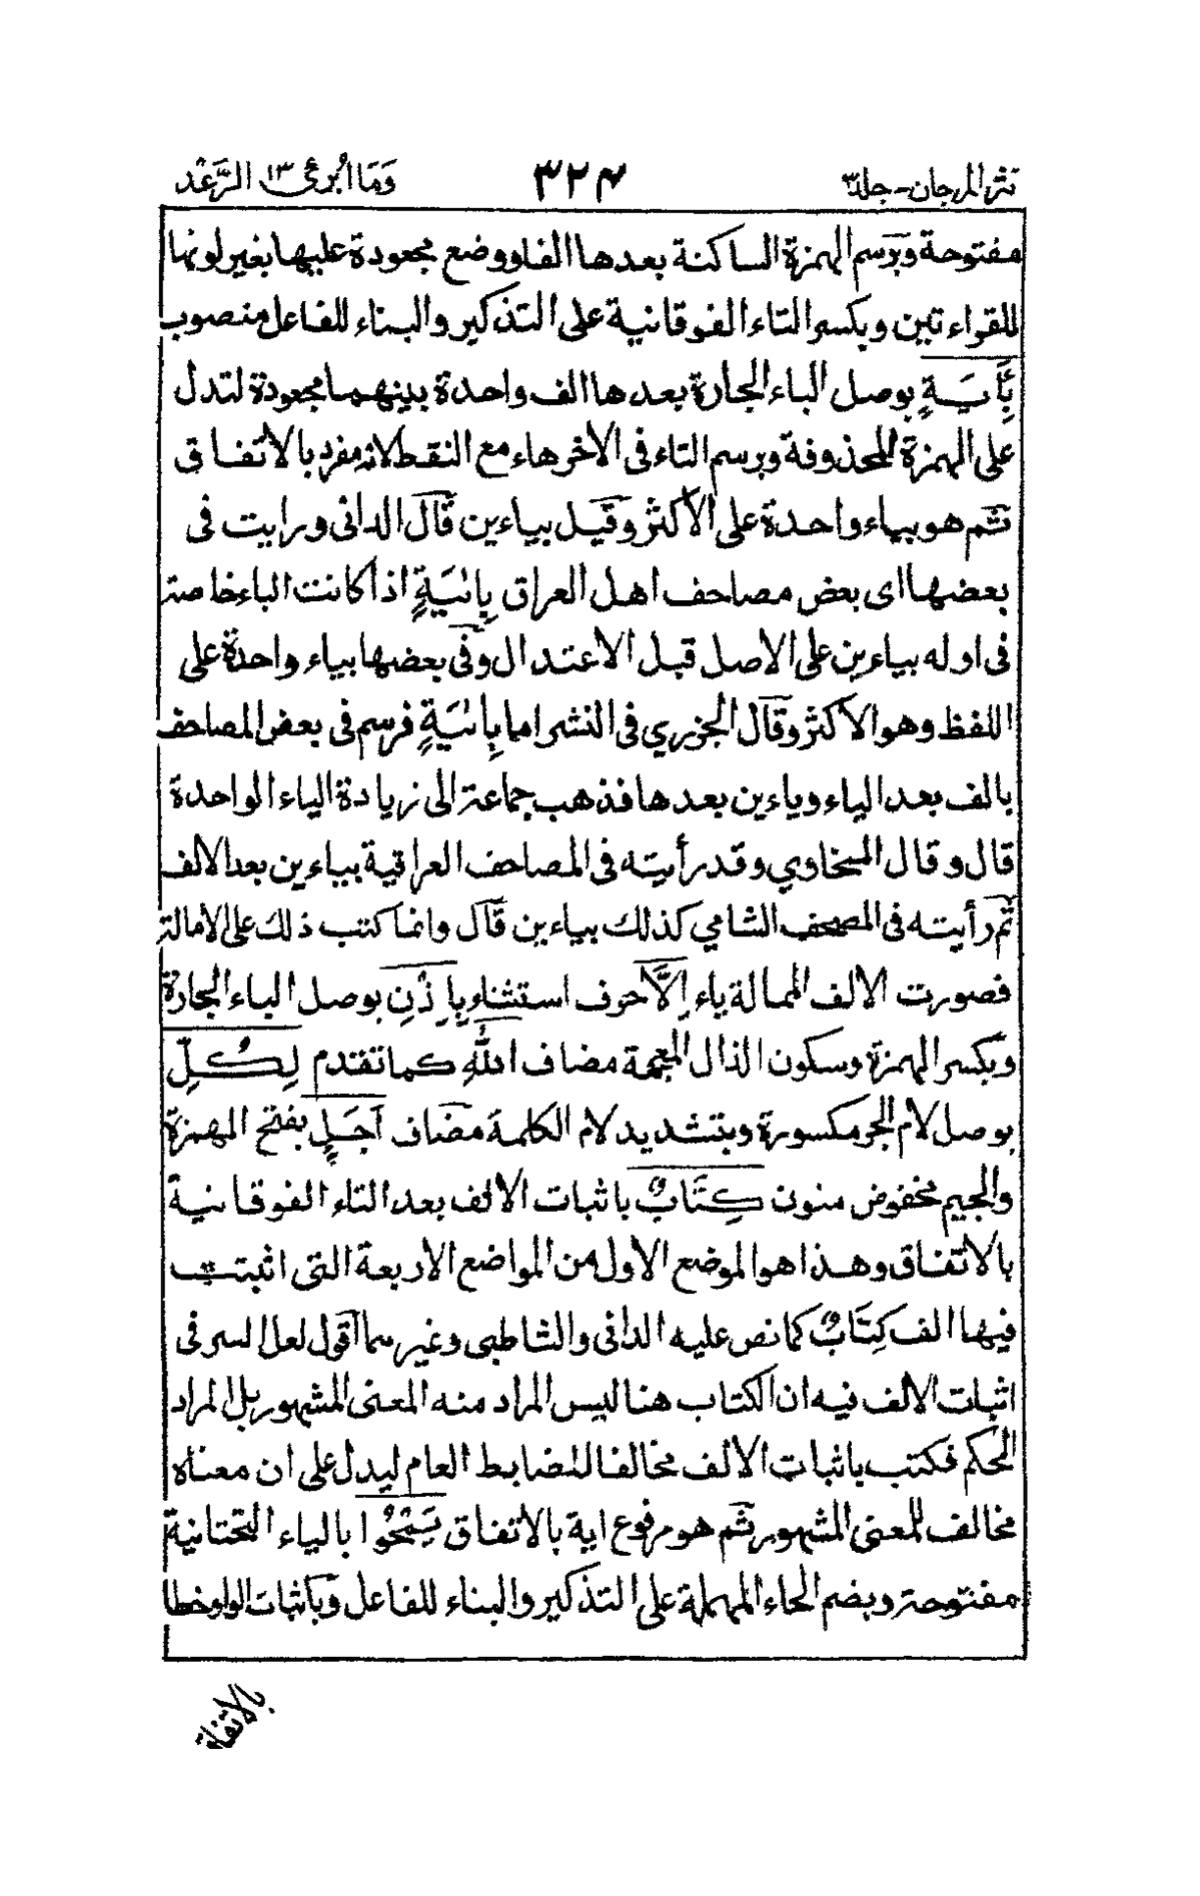 نثر المرجان - جلد ٣ ٣٢٤ وَمَا اُبرئ ١٣ الرَّعْد
مفتوحة وبرسم الهمزة الساكنة بعدها الفا ووضع مجعودة عليها بغير لونها
للقراءتين وبكسر التاء الفوقانية على التذكير والبناء للفاعل منصوب
بِأَيَةٍ بوصل الباء الجارة بعدها الف واحدة بينهما مجعودة لتدل
على الهمزة المحذوفة وبرسم التاء فى الأخر هاء مع النقط لانه مفرد بالاتفاق
ثم هو بياء واحدة على الأكثر وقيل بياءين قال الدانى ورايت فى
بعضها اى بعض مصاحف اهل العراق بِائيَةٍ اذا كانت الباء خاصة
فى اوله بياءين على الاصل قبل الاعتدال وفى بعضها بياء واحدة على
اللفظ وهو الاكثر وقال الجزري فى النشر اما بِائيَةٍ فرسم فى بعض المصاحف
بالف بعد الباء وياءين بعدها فذهب جماعة الى زيادة الياء الواحدة
قال وقال السخاوي وقد رأيته فى المصاحف العراقية بياءين بعد الالف
ثم رأيته فى المصحف الشامي كذلك بياءين قال وانما كتب ذلك على الامالة
فصورت الالف الممالة ياء اِلَّا حرف استثناء بِاِذْنِ بوصل الباء الجارة
وبكسر الهمزة وسكون الذال المعجمة مضاف اللّٰهِ كما تقدم لِكُلِّ
بوصل لام الجر مكسورة وبتشديد لام الكلمة مضاف اَجَلٍ بفتح الهمزة
والجيم مخفوض منون كِتَابٌ باثبات الالف بعد التاء الفوقانية
بالاتفاق وهذا هو الموضع الاول من المواضع الاربعة التى اثبتت
فيها الف كِتَابٌ كما نص عليه الدانى والشاطبى وغيرهما اقول لعل السر فى
اثبات الالف فيه ان الكتاب هنا ليس المراد منه المعنى المشهور بل المراد
الحكم فكتب باثبات الالف مخالفا للضابط العام ليدل على ان معناه
مخالف للمعنى المشهور ثم هو مرفوع اية بالاتفاق يَمْحُوا بالياء التحتانية
مفتوحة وبضم الحاء المهملة على التذكير والبناء للفاعل وباثبات الواو خطا
بالاتفاق